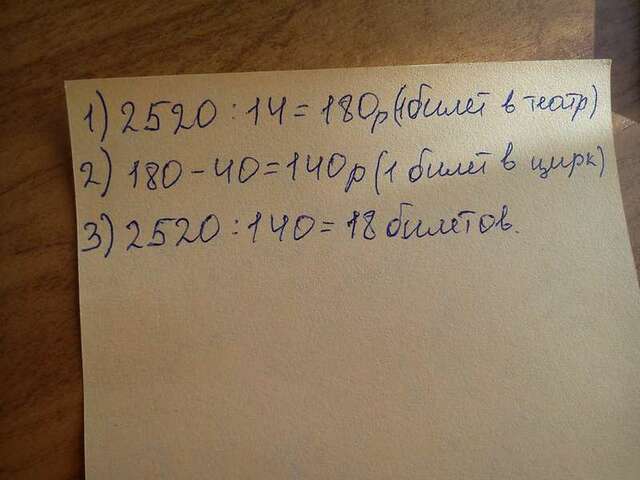 1) 2520 : 14 = 180р (1 билет в театр)
2) 180 - 40 = 140р (1 билет в цирк)
3) 2520 : 140 = 18 билетов.